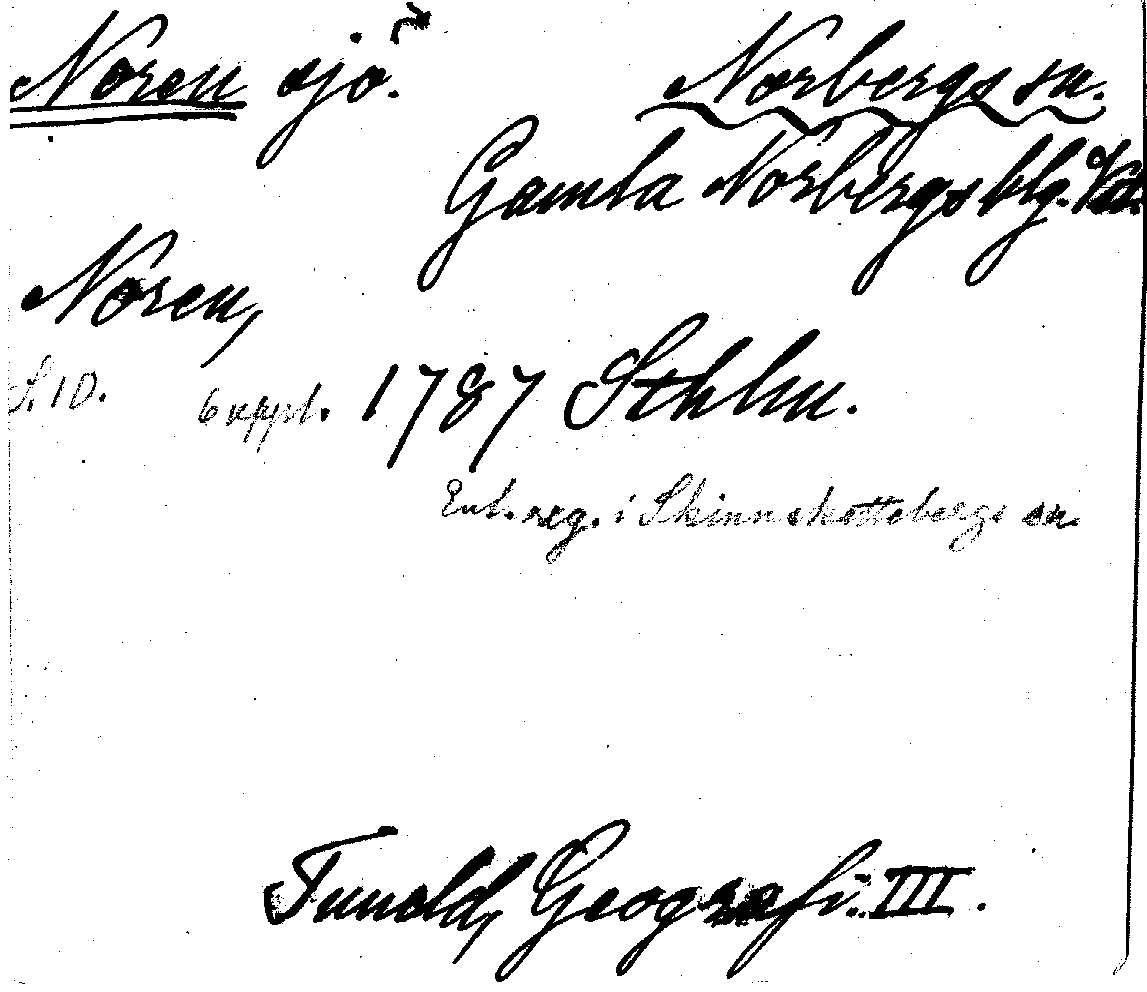 Noren sjö. Norbergs sn.
Gamla Norbergs blg. Vstm.
Noren,
S. 10. 6 uppl. 1787 Sthlm.
Enl. reg. i Skinnskattebergs sn.
Tuneld, Geografi. III.